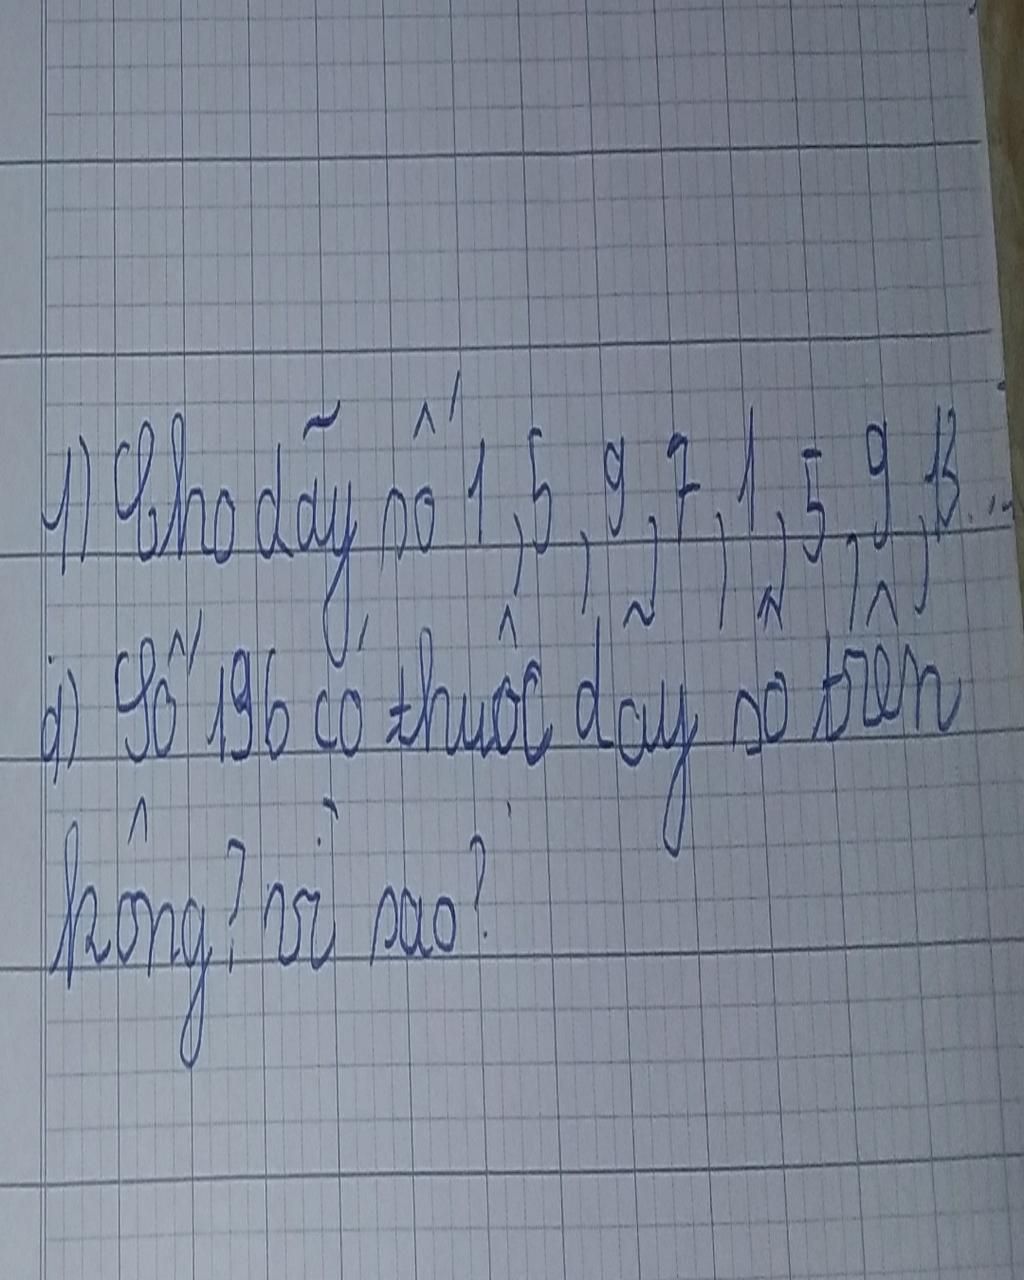 4) Cho dãy số 1, 5, 9, 7, 1, 5, 9, 13...
a) Số 196 có thuộc dãy số trên
không? vì sao?